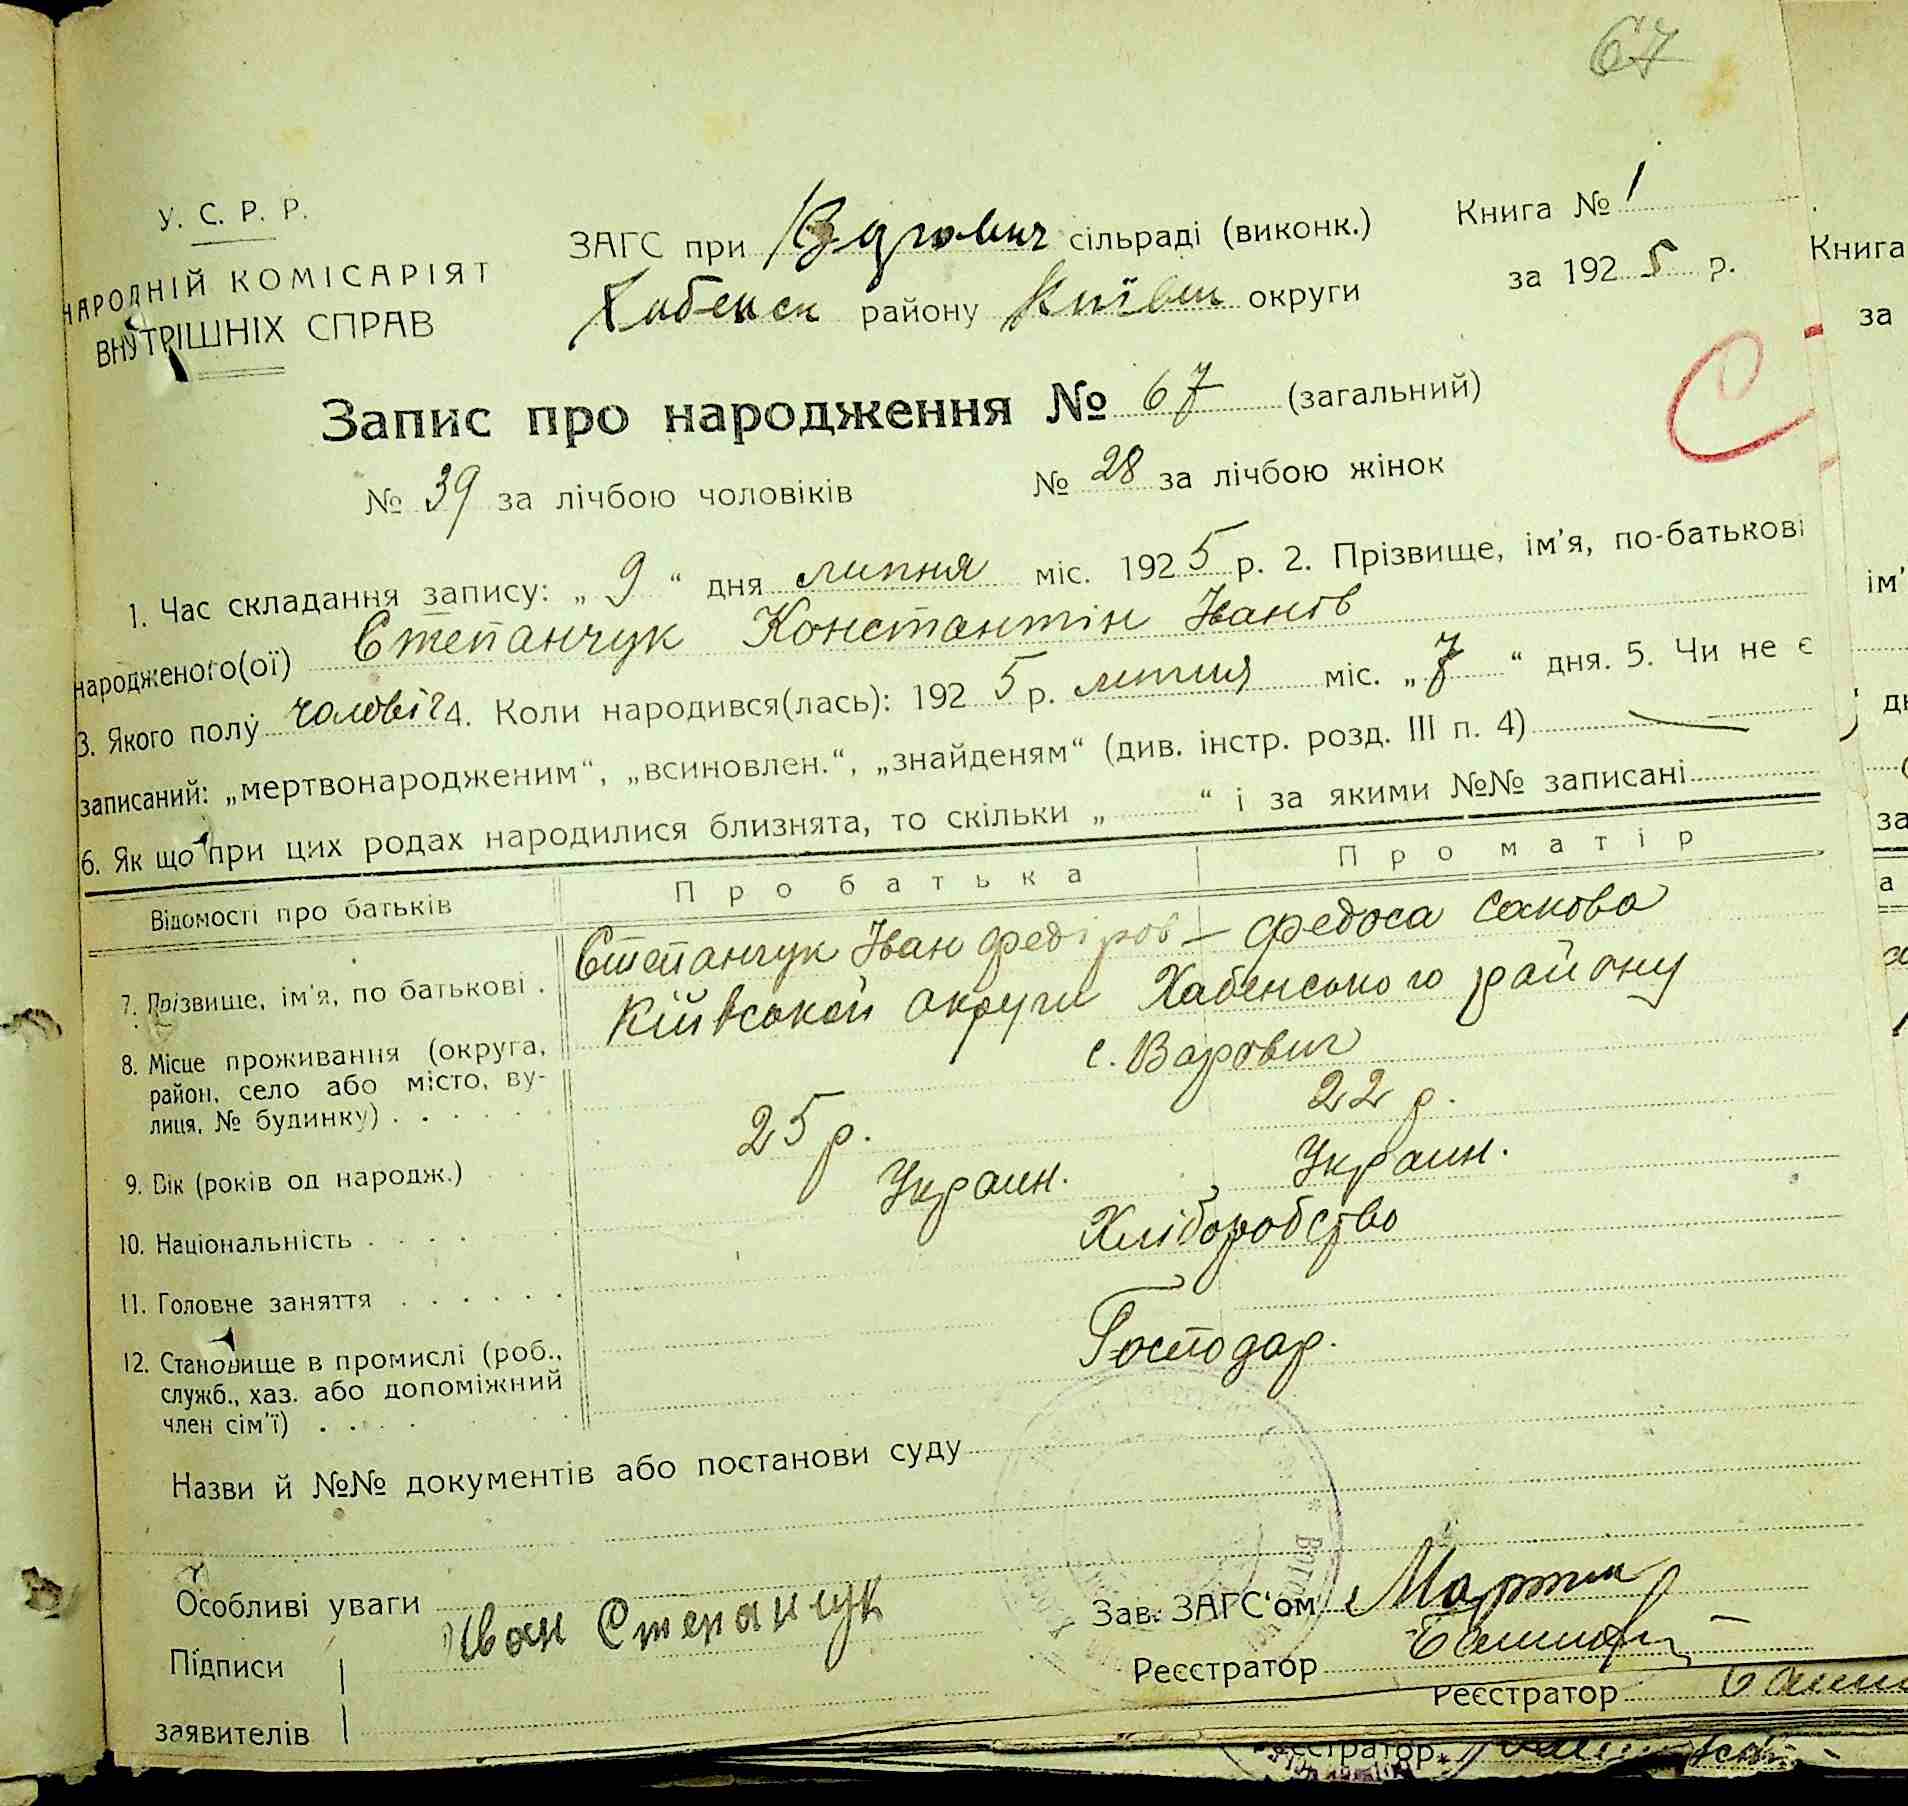 67
У. С. Р. Р.
НАРОДНІЙ КОМІСАРІЯТ
ВНУТРІШНІХ СПРАВ
ЗАГС при Варович сільраді (виконк.)
Хабенск району Київськ округи
Книга № 1
за 1925 р.
Запис про народження № 67 (загальний)
№ 39 за лічбою чоловіків № 28 за лічбою жінок
1. Час складання запису: „ 9 “ дня липня міс. 1925 р. 2. Прізвище, ім’я, по-батькові
народженого(ої) Степанчук Константін Іванів
3. Якого полу чоловіч 4. Коли народився(лась): 1925 р. липня міс. „ 7 “ дня. 5. Чи не є
записаний: „мертвонародженим“, „всиновлен.“, „знайденям“ (див. інстр. розд. III п. 4) —
6. Як що при цих родах народилися близнята, то скільки „ “ і за якими №№ записані
Відомості про батьків Про батька Про матір
7. Прізвище, ім’я, по батькові . Степанчук Іван Федіров – Федоса Сакова
8. Місце проживання (округа, район, село або місто, вулиця, № будинку) . . . . . . Київськой округи Хабенського району
с. Варович
9. Вік (років од народж.) 25 р. 22 р.
10. Національність . . . . Украин. Украин.
11. Головне заняття . . . . . . Хліборобство
12. Становище в промислі (роб., служб., хаз. або допоміжний член сім’ї) . . . Господар.
Назви й №№ документів або постанови суду
Особливі уваги
Підписи
заявителів
Іван Степанчук
Зав. ЗАГС‘ом Мартин
Реєстратор
Реєстратор
Книга
за
ім’